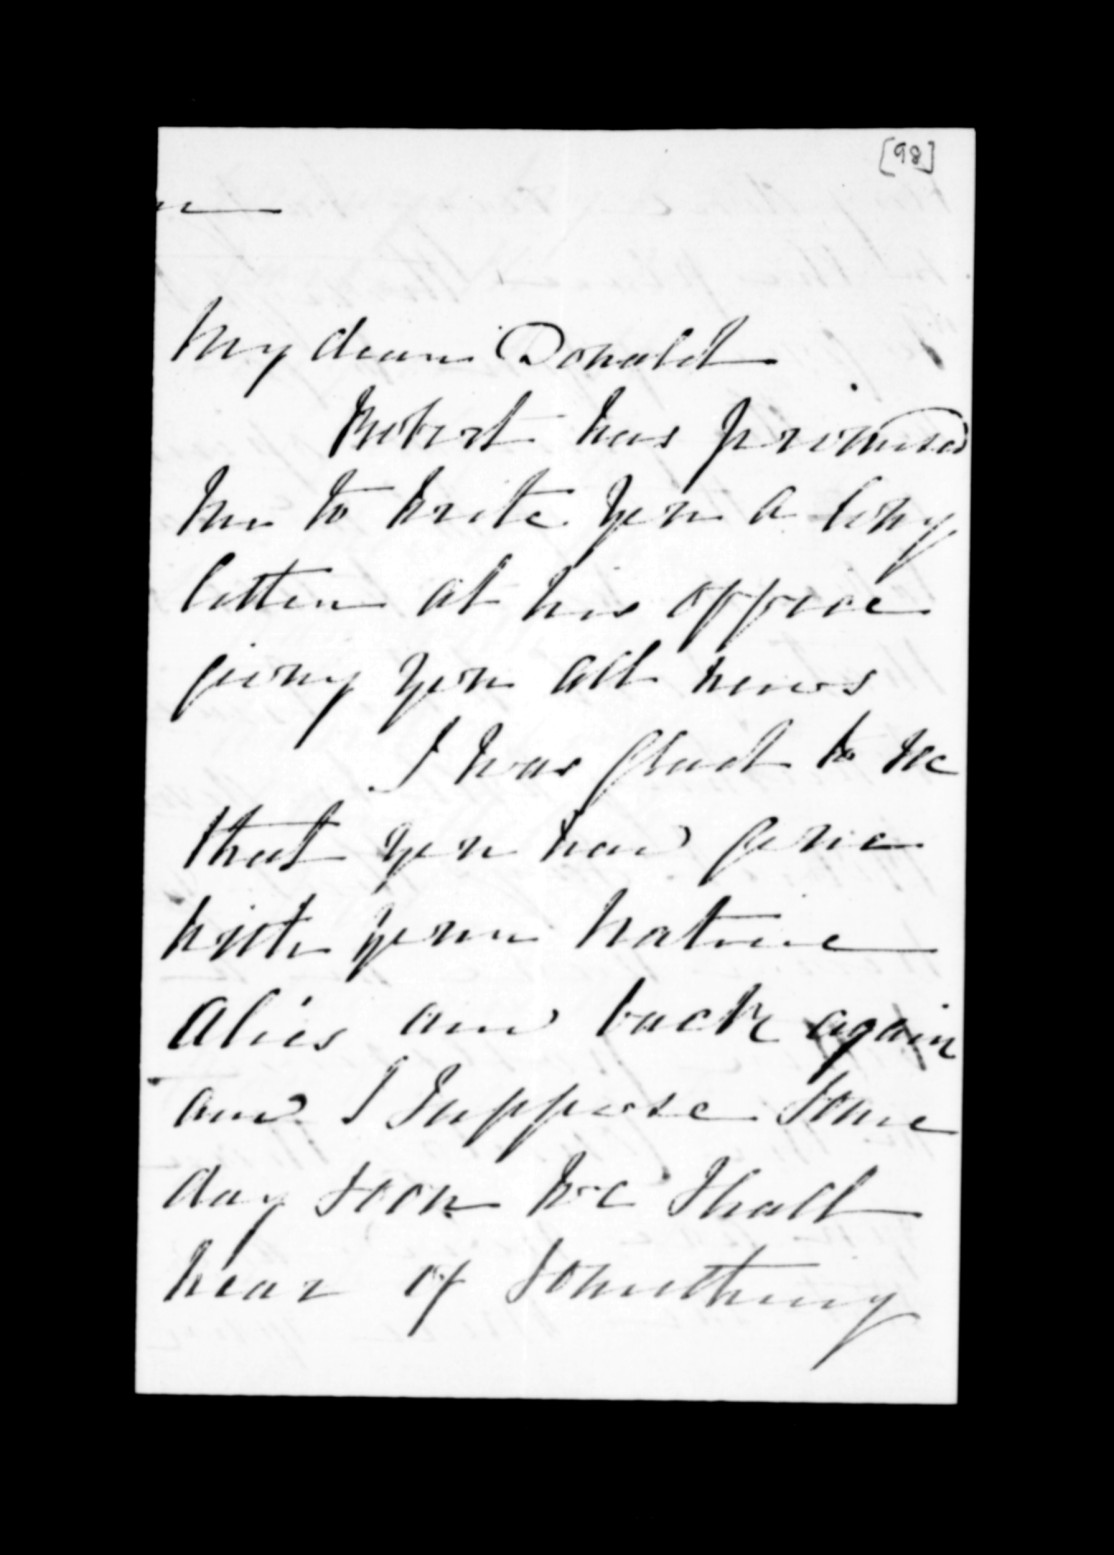 [98]
My dear Donald
Robert has promised
me to write you a long
letter at his office
giving you all news
I was glad to see
that you had gone
with your native
Alies and back again
and I suppose some
day soon we shall
hear of something